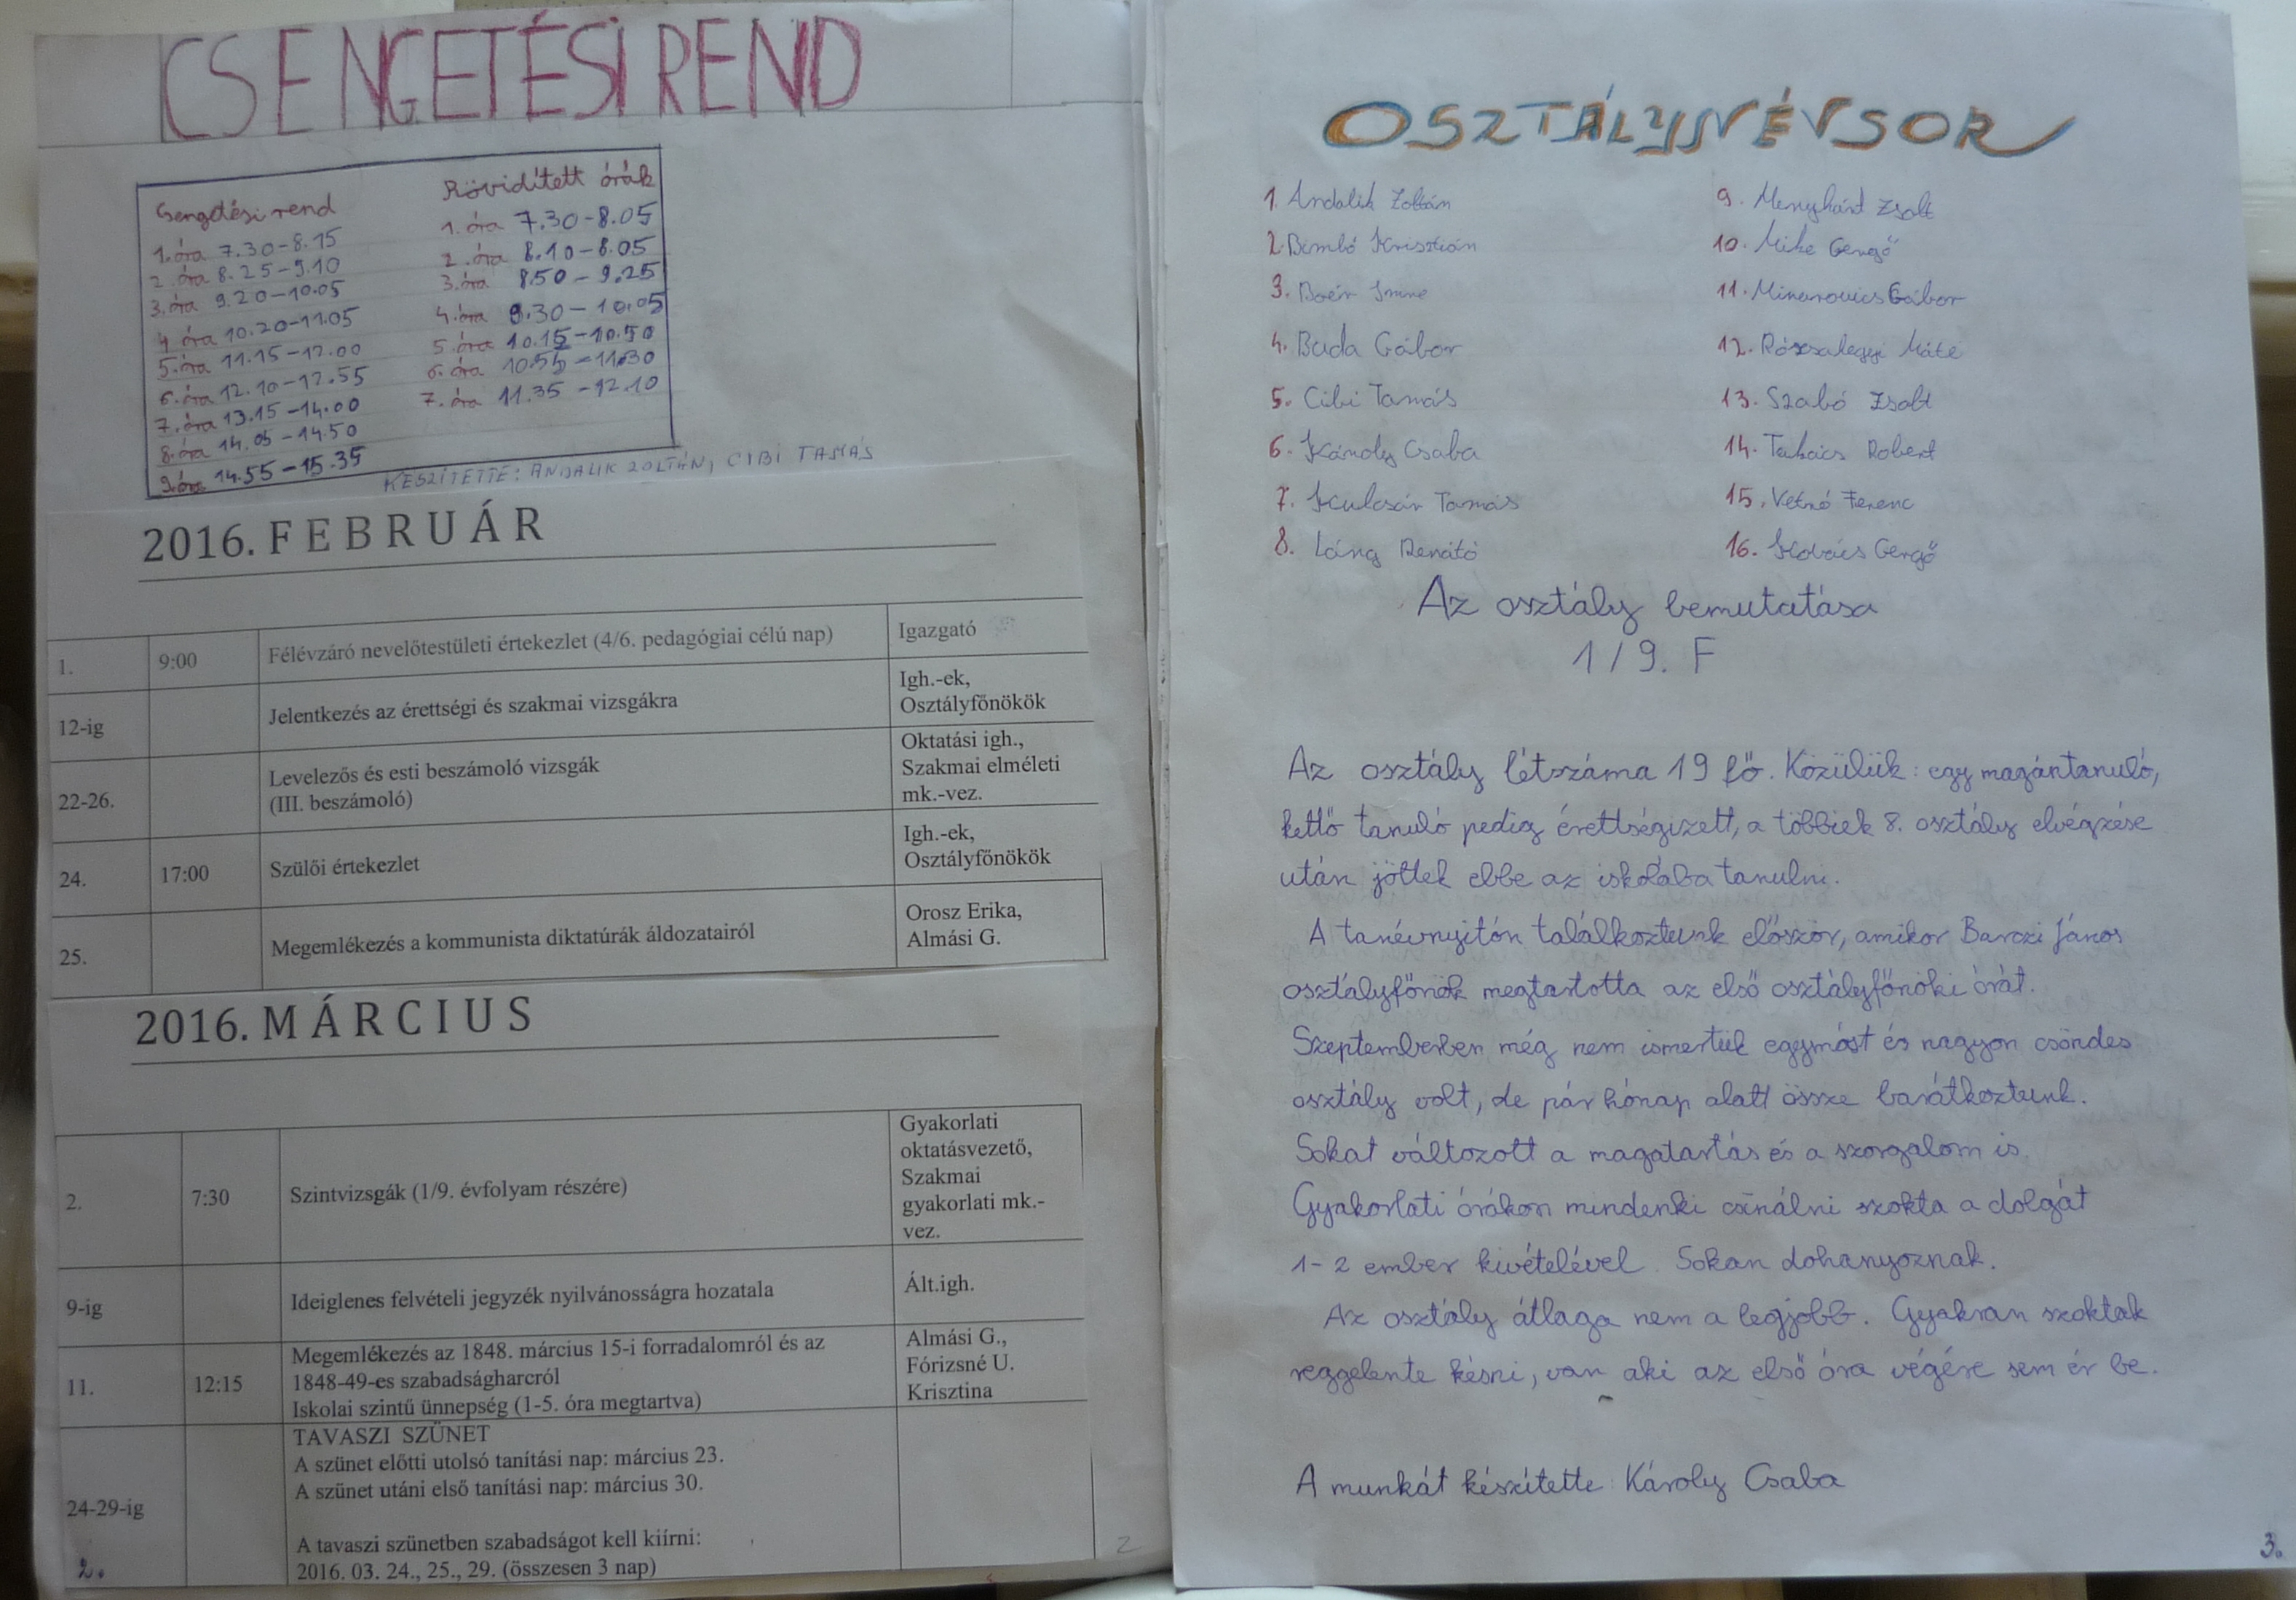 CSENGETÉSI REND
Csengetési rend
1. óra 7.30-8.15
2. óra 8.25-9.10
3. óra 9.20-10.05
4 óra 10.20-11.05
5. óra 11.15-12.00
6. óra 12.10-12.55
7. óra 13.15-14.00
8. óra 14.05-14.50
9. óra 14.55-15.35
Rövidített órák
1. óra 7.30-8.05
2. óra 8.10-8.05
3. óra 8.50-9.25
4. óra 9.30-10.05
5. óra 10.15-10.50
6. óra 10.55-11.30
7. óra 11.35-12.10
KÉSZÍTETTE: ANDALIK ZOLTÁN, CIBI TAMÁS
2016. FEBRUÁR
1. 9:00 Félévzáró nevelőtestületi értekezlet (4/6. pedagógiai célú nap) Igazgató
12-ig Jelentkezés az érettségi és szakmai vizsgákra Igh.-ek,
Osztályfőnökök
22-26. Levelezős és esti beszámoló vizsgák
(III. beszámoló)
Oktatási igh.,
Szakmai elméleti
mk.-vez.
24. 17:00 Szülői értekezlet Igh.-ek,
Osztályfőnökök
25. Megemlékezés a kommunista diktatúrák áldozatairól Orosz Erika,
Almási G.
2016. MÁRCIUS
2. 7:30 Szintvizsgák (1/9. évfolyam részére) Gyakorlati
oktatásvezető,
Szakmai
gyakorlati mk.-
vez.
9-ig Ideiglenes felvételi jegyzék nyilvánosságra hozatala Ált.igh.
11. 12:15 Megemlékezés az 1848. március 15-i forradalomról és az
1848-49-es szabadságharcról
Iskolai szintű ünnepség (1-5. óra megtartva)
Almási G.,
Fórizsné U.
Krisztina
24-29-ig TAVASZI SZÜNET
A szünet előtti utolsó tanítási nap: március 23.
A szünet utáni első tanítási nap: március 30.
A tavaszi szünetben szabadságot kell kiírni:
2016. 03. 24., 25., 29. (összesen 3 nap)
2.
2
OSZTÁLYNÉVSOR
1. Andalik Zoltán
2. Bimbó Krisztián
3. Boér Imre
4. Buda Gábor
5. Cibi Tamás
6. Károly Csaba
7. Kulcsár Tamás
8. Láng Renátó
9. Menyhárt Zsolt
10. Mike Gergő
11. Gábor
12. Rózsahegyi Máté
13. Szabó Zsolt
14. Takács Robert
15. Vetró Ferenc
16. Kovács Gergő
Az osztály bemutatása
1/9. F
Az osztály létszáma 19 fő. Közülük: egy magántanuló,
kettő tanuló pedig érettségizett, a többiek 8. osztály elvégzése
után jöttek ebbe az iskolába tanulni.
A tanévnyitón találkoztunk először, amikor Barczi János
osztályfőnök megtartotta az első osztályfőnöki órát.
Szeptemberben még nem ismertük egymást és nagyon csöndes
osztály volt, de pár hónap alatt össze barátkoztunk.
Sokat változott a magatartás és a szorgalom is.
Gyakorlati órákon mindenki csinálni szokta a dolgát
1-2 ember kivételével. Sokan dohanyoznak.
Az osztály átlaga nem a legjobb. Gyakran szoktak
reggelente késni, van aki az első óra végére sem ér be.
A munkát készítette: Károly Csaba
3.